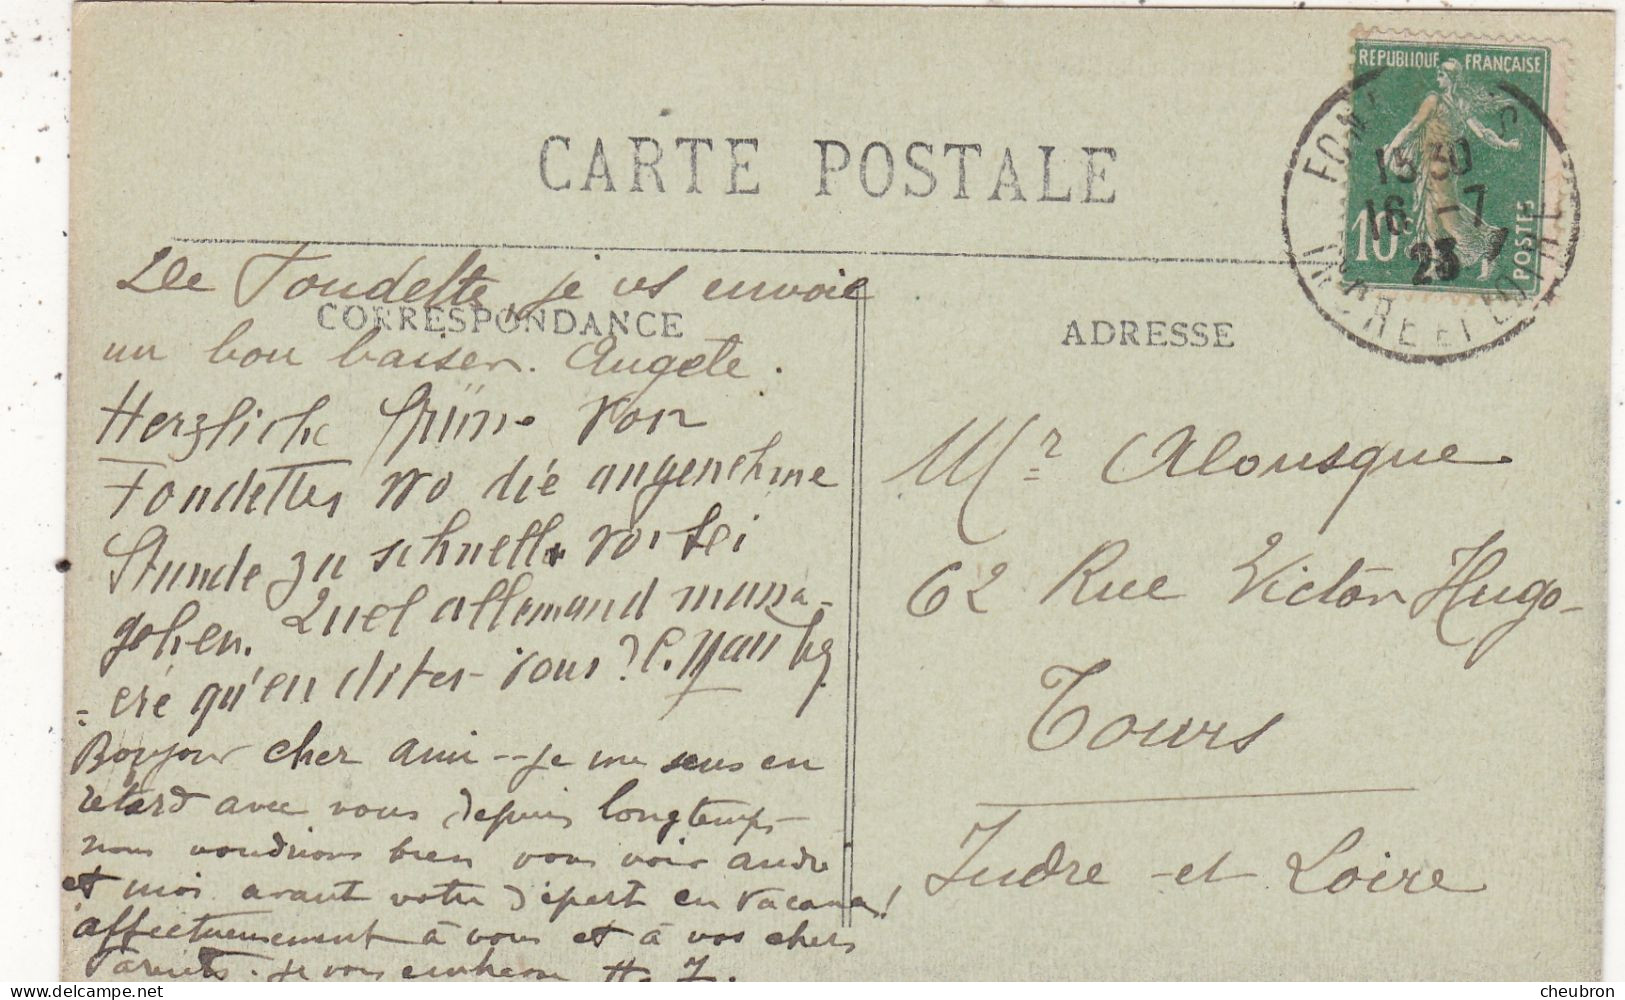 CARTE POSTALE
REPUBLIQUE FRANÇAISE
10c
POSTES
15 30
16 -7
23
INDRE ET LOIRE
CORRESPONDANCE
De Fondette, je vs envoie
un bon baiser. Angèle.
Herzliche Grüsse von
Fondettes wo die angenehme
Stunde zu schnell vorbei
gehen. Quel allemand maza-
= eré qu'en dites-vous?
Bonjour cher ami -- je me sens en
retard avec vous depuis longtemps
nous voudrions bien vous voir andré
et moi avant votre départ en vacances!
affectueusement à vous et à vos chers
Parents. je vous embrasse H. J.
ADRESSE
Mr Alousque
62 Rue Victor Hugo-
Tours
Indre et Loire
cheubron @ delcampe.net